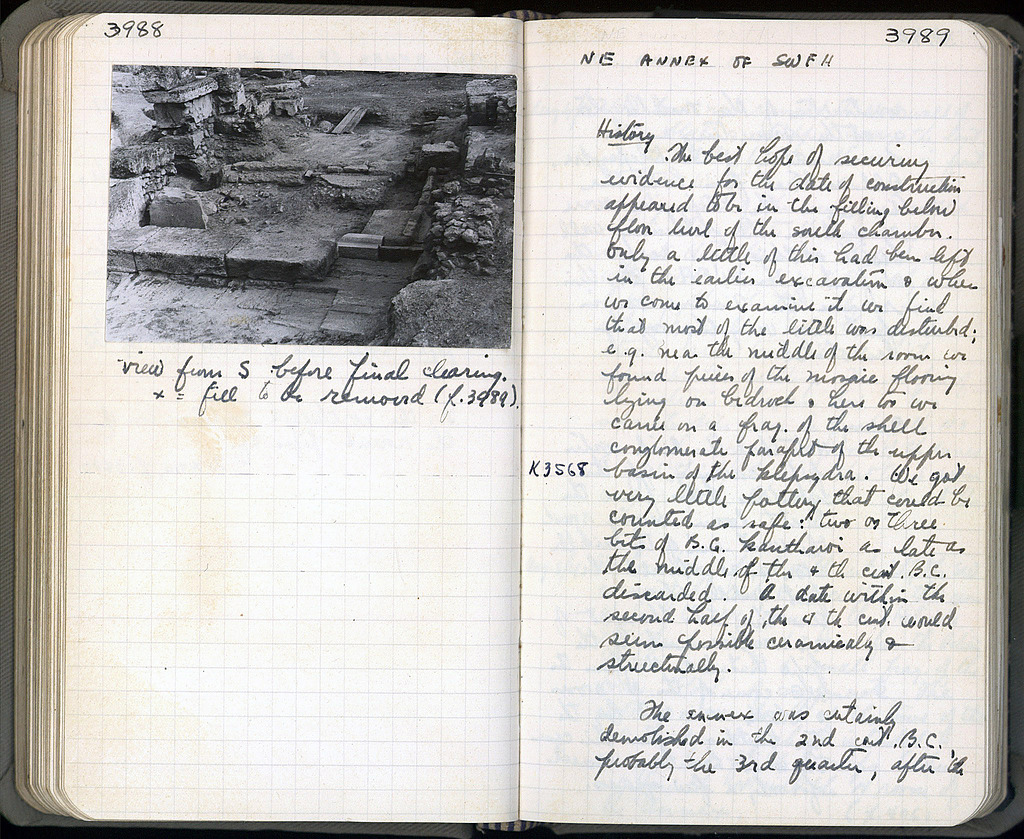 3988
view from S before final clearing.
x = fill to be removed (f. 3989).
3989
NE ANNEX OF SWFH
History
The best hope of securing
evidence for the date of construction
appeared to be in the filling below
floor level of the south chamber.
Only a little of this had been left
in the earlier excavation & when
we come to examine it we find
that most of the little was disturbed;
e.g. near the middle of the room we
found pieces of the mosaic flooring
lying on bedrock & here too we
came on a frag. of the shell
conglomerate parapet of the upper
K3568 basin of the Klepsydra. We got
very little pottery that could be
counted as safe: two or three
bits of B.G. kantharoi as late as
the middle of the 4th cent. B.C.
discarded. A date within the
second half of the 4th cent. would
seem possible ceramically &
structurally.
The annex was certainly
demolished in the 2nd cent. B.C.,
probably the 3rd quarter, after the